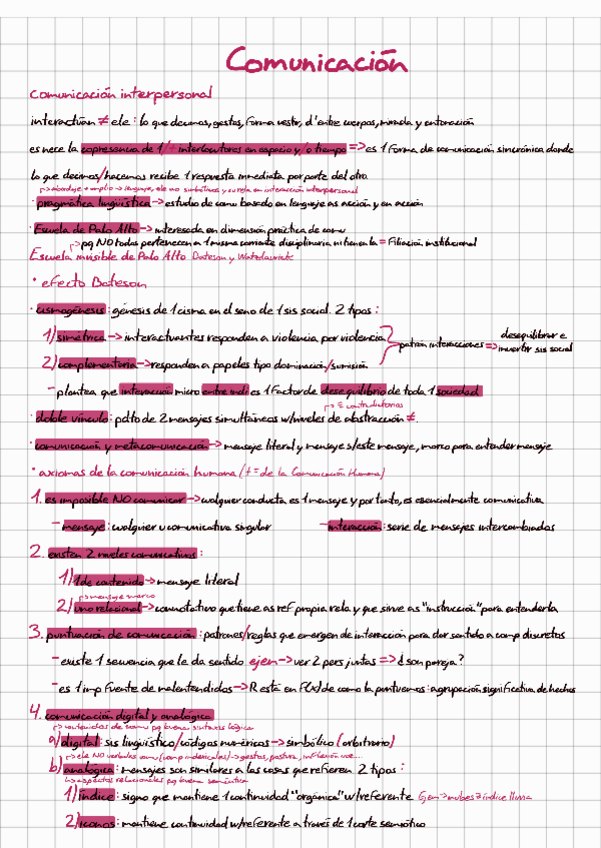 Comunicación
comunicación interpersonal
interactúan ≠ ele: lo que decimos, gestos, forma vestir, d' entre cuerpos, mirada y entonación
es nece la copresencia de 1/+ interlocutores en espacio y/o tiempo => es 1 forma de comunicación sincrónica donde
lo que decimos/hacemos recibe 1 respuesta inmediata por parte del otro
· pragmática lingüística -> estudio de comu basado en lenguaje as acción y en acción
· Escuela de Palo Alto -> interesada en dimensión práctica de comu
-> pq NO todos pertenecen a 1 misma corriente disciplinaria ni tienen la = filiación institucional
Escuela invisible de Palo Alto Bateson y Watzlawick
· efecto Bateson
· cismogénesis: génesis de 1 cisma en el seno de 1 sis social. 2 tipos:
1) simétrica -> interactuantes responden a violencia por violencia
2) complementaria -> responden a papeles tipo dominación/sumisión
patrón interacciones => desequilibrar e invertir sis social
- plantea que interacción micro entre indi es 1 factor de desequilibrio de toda 1 sociedad
-> = contradictorios
· doble vínculo: pdto de 2 mensajes simultáneos w/niveles de abstracción ≠.
· comunicación y metacomunicación -> mensaje literal y mensaje s/este mensaje, marco para entender mensaje
· axiomas de la comunicación humana (t = de la Comunicación Humana)
1. es imposible NO comunicar -> cualquier conducta es 1 mensaje y por tanto, es esencialmente comunicativa
- mensaje: cualquier u comunicativa singular - interacción: serie de mensajes intercambiados
2. existen 2 niveles comunicativos:
1) 1 de contenido -> mensaje literal
-> mensaje marco
2) uno relacional -> connotativo que tiene as ref propia rela y que sirve as "instrucción" para entenderla
3. puntuación de comunicación: patrones/reglas que emergen de interacción para dar sentido a comp discretos
- existe 1 secuencia que le da sentido ejem -> ver 2 pers juntas => ¿son pareja?
- es 1 imp fuente de malentendidos -> R está en F(x) de como la puntuemos: agrupación significativa de hechos
4. comunicación digital y analógica
-> contenidos de comu pq buena sintaxis lógica
a) digital: sis lingüístico/códigos numéricos -> simbólico (arbitrario)
b) analógica: mensajes son similares a las cosas que refieren 2 tipos:
-> aspectos relacionales pq buena semántica
1) índice: signo que mantiene 1 continuidad "orgánica" w/referente Ejem -> nubes = índice lluvia
2) iconos: mantiene continuidad w/referente a través de 1 corte semiótico